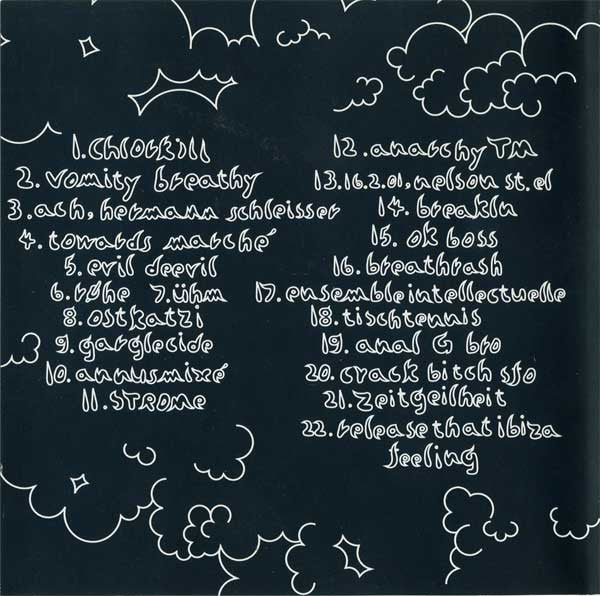 1. chlorkill
2. vomity breathy
3. ach, hermann schleisser
4. towards marché
5. evil deevil
6. røhe 7. ühm
8. ostkatzi
9. garglecide
10. annusmixé
11. STROME
12. anarchy TM
13. 16.2.01, nelson st. el
14. breakln
15. ok boss
16. breathrash
17. ensemble intellectuelle
18. tischtennis
19. anal G bro
20. crack bitch sfo
21. zeitgeilheit
22. release that ibiza
feeling